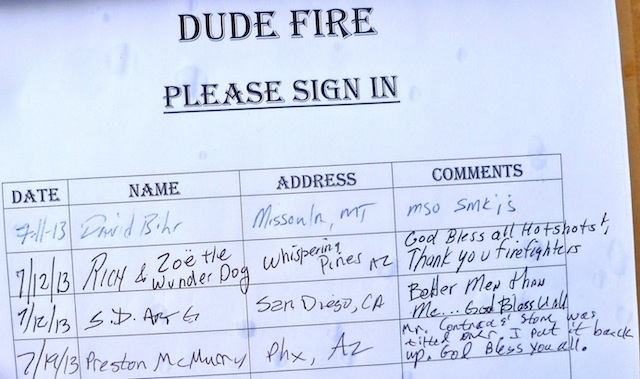 DUDE FIRE
PLEASE SIGN IN
DATE NAME ADDRESS COMMENTS
7-11-13 David Bihr Missoula, MT mso smkjs
7/12/13 Rich & Zoë the Wunder Dog Whispering Pines AZ God Bless all Hotshots!, Thank you firefighters
7/12/13 S.D. San Diego, CA Better Men than Me... God Bless U All
7/19/13 Preston McMurry Phx, AZ Mr. Contreras' stone was tilted over. I put it back up. God Bless you all.